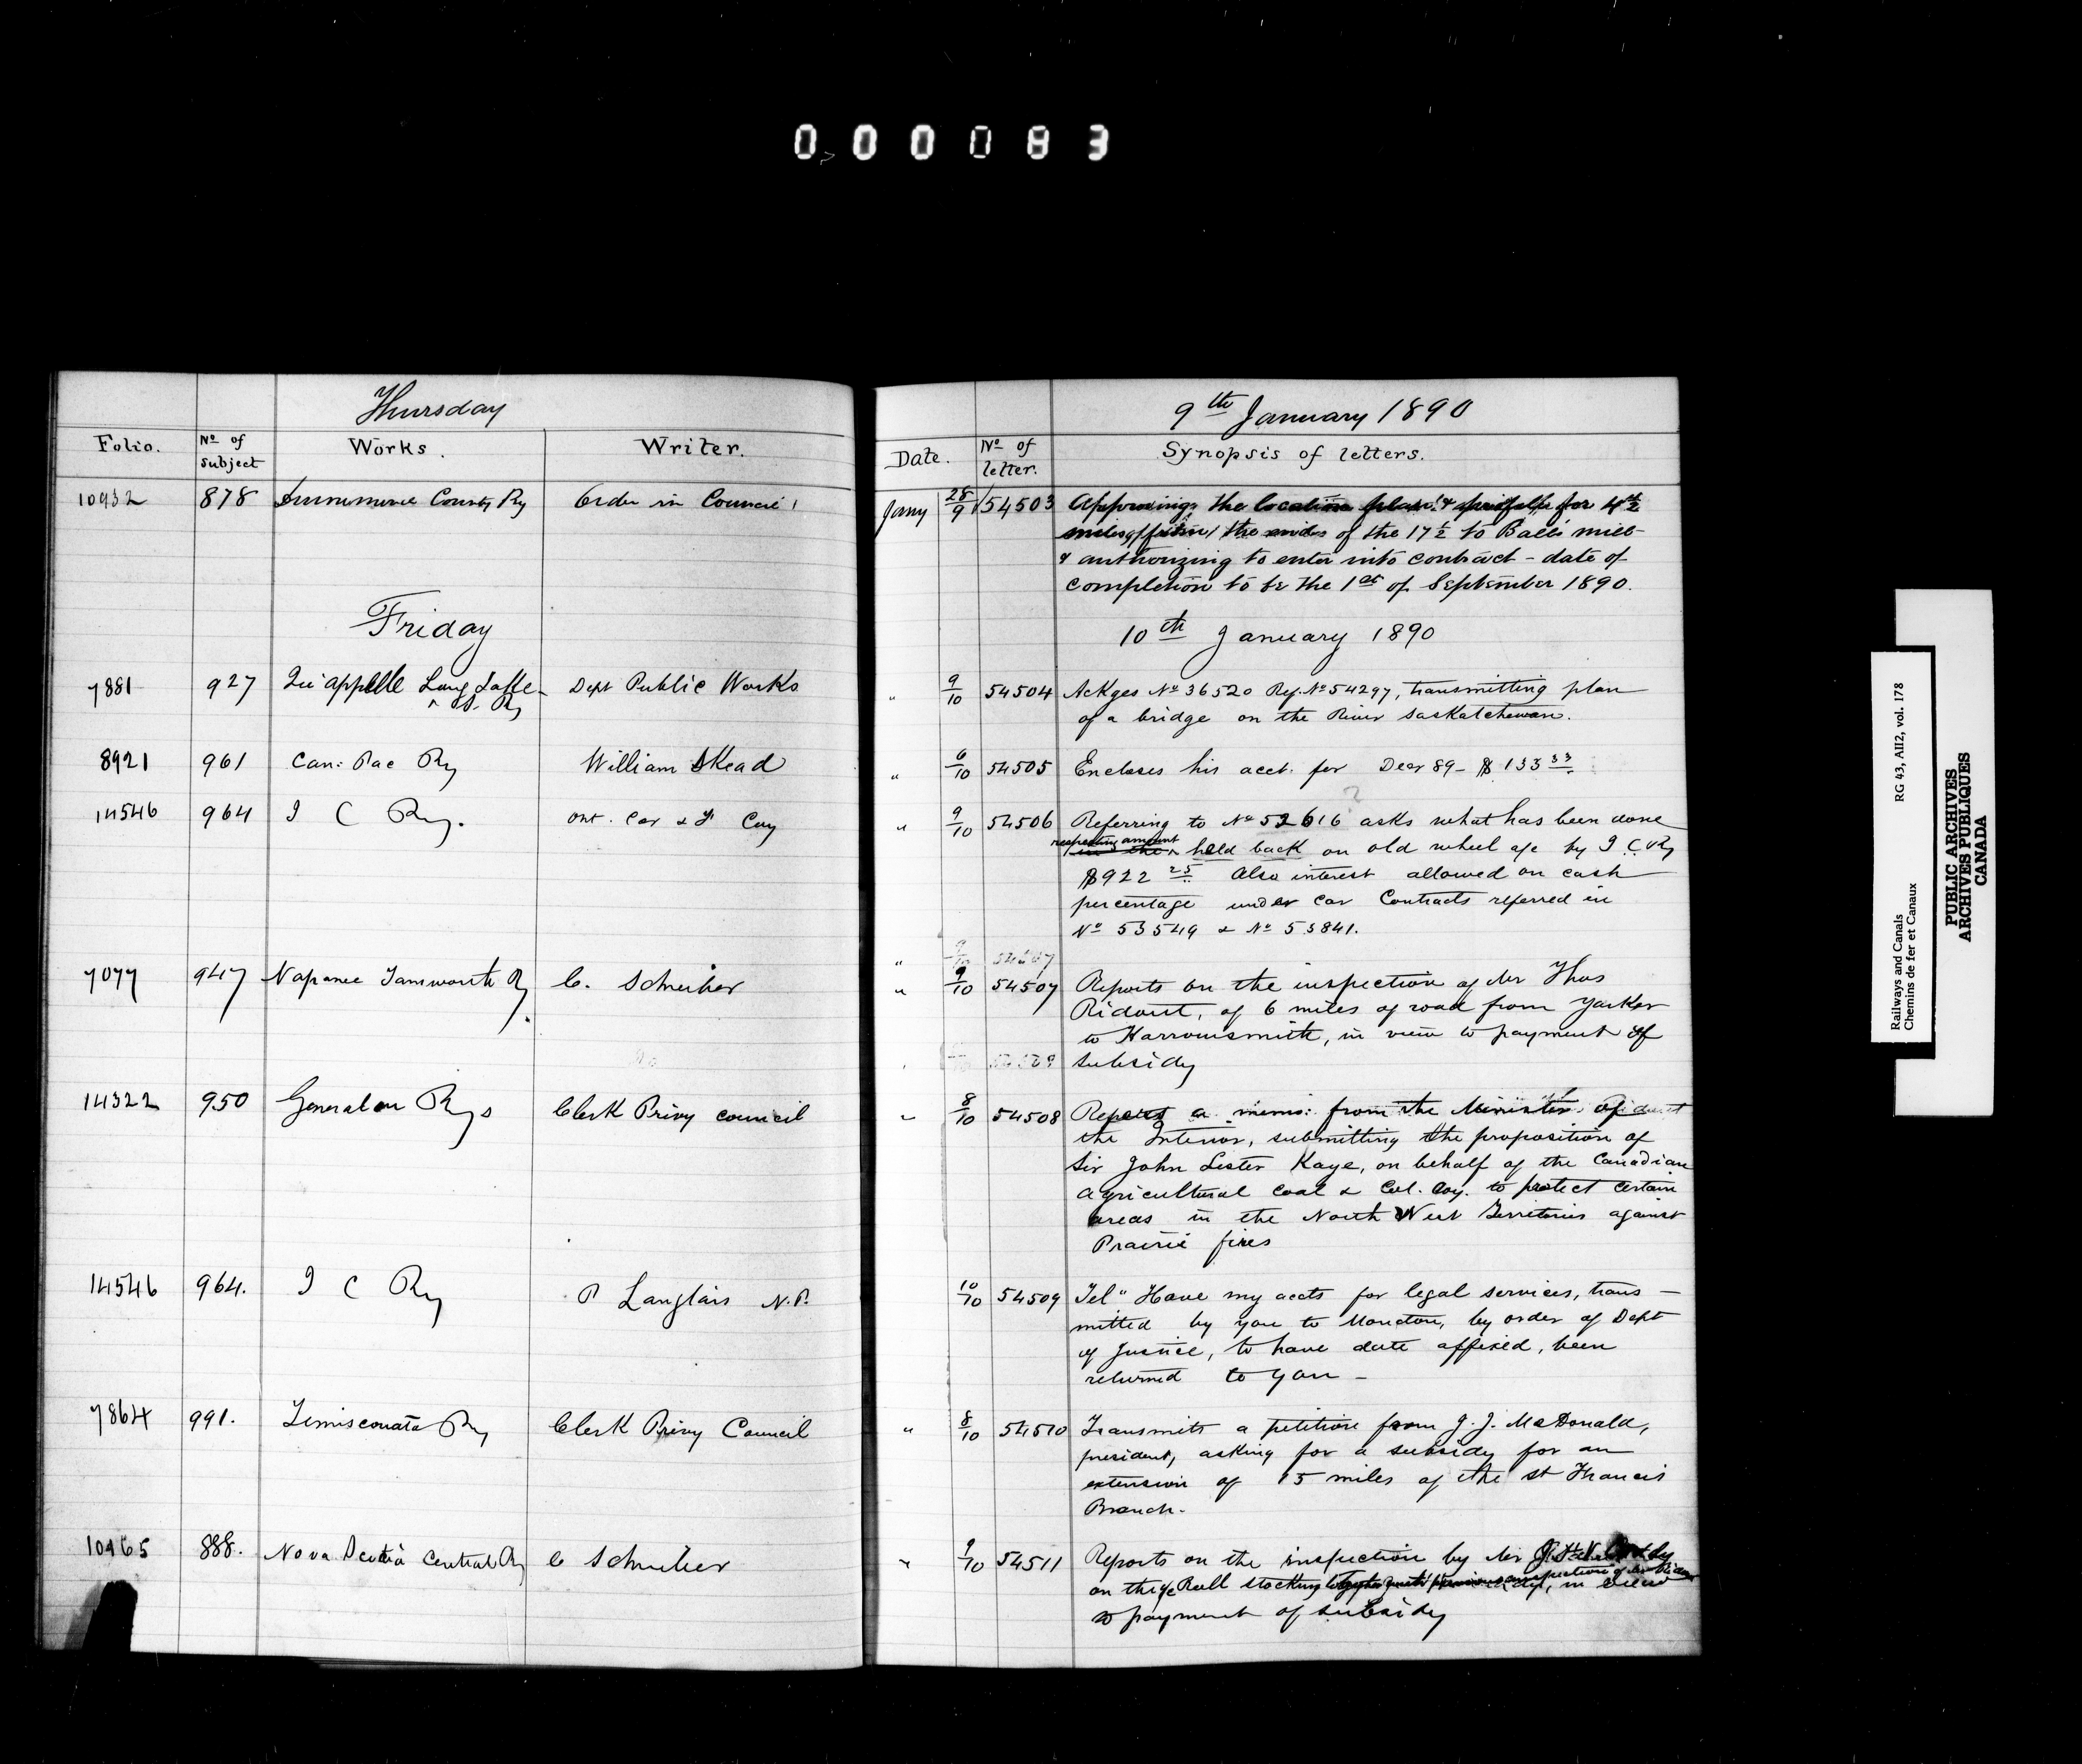 0,00083
Thursday
9th January 1890
Folio. No of subject Works. Writer. Date. No of letter. Synopsis of letters.
10932 878 County Ry Order in Council Jany 28/9 54503 Approving the location plan & for 4 1/2
miles the ends of the 17 1/2 to Balls mill
& authorizing to enter into contract - date of
completion to be the 1st of September 1890.
Friday
10th January 1890
7881 927 Qu'appelle Long Lake & S. Ry Dept Public Works " 9/10 54504 Ackges No 36520 Ref. No 54297, transmitting plan
of a bridge on the River Saskatchewan.
8921 961 Can: Pac Ry William Skead " 6/10 54505 Encloses his acct. for Decr 89 - $133 33
14546 964 I C Ry. Ont. Car & F Coy " 9/10 54506 Referring to No 52616 asks what has been done
respecting amount held back on old wheel a/c by I C Ry
$922 25 Also interest allowed on cash
percentage under car Contracts referred in
No 53549 & No 53841.
7077 947 Napanee Tamworth Ry C. Schreiber " 9/10 54507 Reports on the inspection of Mr Thos
Ridout, of 6 miles of road from Yarker
to Harrowsmith, in view to payment of
subsidy
14322 950 General on Rys Clerk Privy council " 8/10 54508 a memo: from the Minister of
the Interior, submitting the proposition of
Sir John Lester Kaye, on behalf of the Canadian
Agricultural coal & Col. Coy. to protect certain
areas in the North West Territories against
Prairie fires
14546 964. I C Ry P Langlais N.P. 10/10 54509 Tel " Have my accts for legal services, trans-
mitted by you to Moncton, by order of Dept
of Justice, to have date affixed, been
returned to you -
7864 991. Temiscouata Ry Clerk Privy Council " 8/10 54510 Transmits a petition from J. J. McDonald,
president, asking for a subsidy for an
extension of 15 miles of the St Francis
Branch.
10465 888. Nova Scotia Central Ry C Schreiber " 9/10 54511 Reports on the inspection by Mr
on the Roll stock inspection of Mr in view
to payment of subsidy
Railways and Canals RG 43, AII2, vol. 178
Chemins de fer et Canaux
PUBLIC ARCHIVES
ARCHIVES PUBLIQUES
CANADA